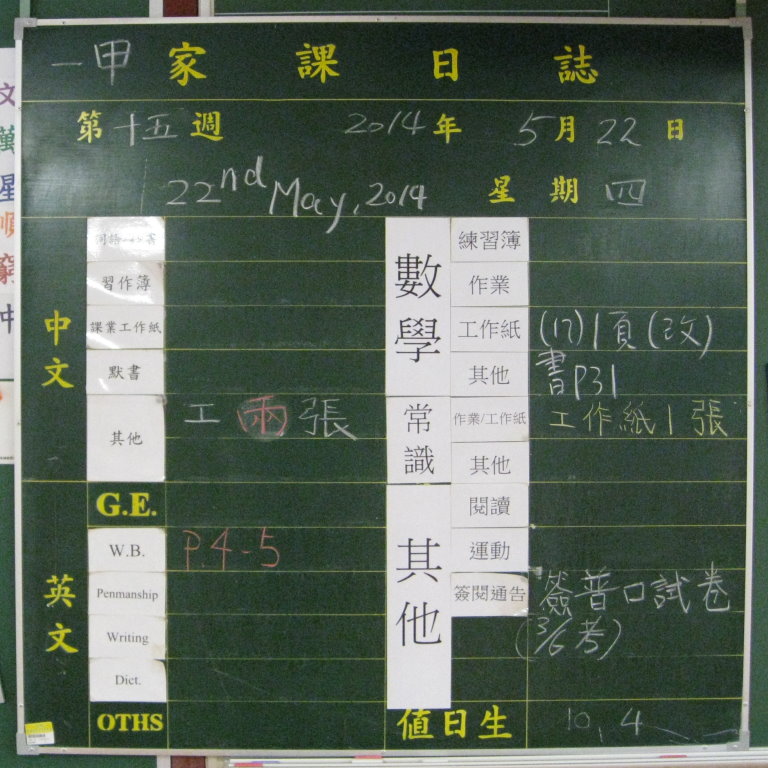 一甲家課日誌
第十五週 2014年 5月22日
22nd May, 2014 星期四
中文
習作簿
課業工作紙
默書
其他 工兩張
英文
G.E.
W.B. P.4-5
Penmanship
Writing
Dict.
OTHS
數學
練習簿
作業
工作紙 (17)1頁(改)
其他 書P31
常識
作業/工作紙 工作紙1張
其他
其他
閱讀
運動
簽閱通告 簽普口試卷
(3/6考)
值日生 10, 4
文
萬
星
順
窮
中